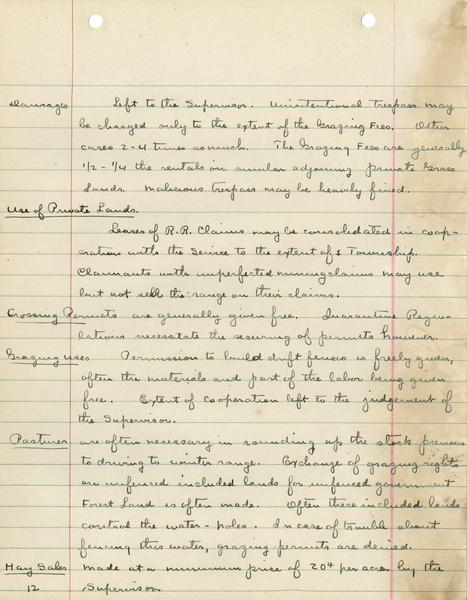 Damages Left to the Supervisor. Unintentional trespass may
be charged only to the extent of the Grazing Fees. Other
cases 2-4 times as much. The Grazing Fees are generally
1/2 - 1/4 the rentals on similar adjoining private Grass
Lands. Malicious trespass may be heavily fined.
Use of Private Lands.
Leases of R.R. Claims may be consolidated in coop-
eration with the Service to the extent of 1 Township.
Claimants with unperfected mining claims may use
but not sell the range on their claims.
Crossing Permits are generally given free. Quarantine Regu-
lations necessitate the securing of permits however.
Grazing uses Permission to build drift fences is freely given,
often the materials and part of the labor being given
free. Extent of cooperation left to the judgement of
the Supervisor.
Pastures are often necessary in rounding up the stock previous
to driving to winter range. Exchange of grazing rights
on unfenced included lands for unfenced government
Forest Land is often made. Often these included lands
control the water-holes. In case of trouble about
fencing this water, grazing permits are denied.
Hay Sales made at a minimum price of 20¢ per acre by the
12 Supervisor